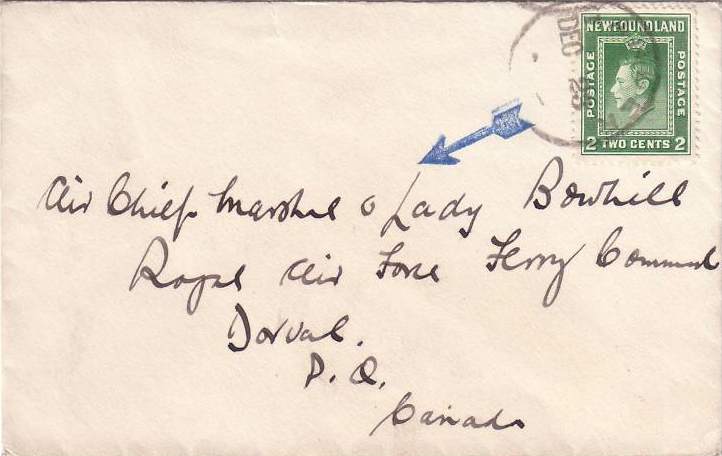 NEWFOUNDLAND
POSTAGE
POSTAGE
2 TWO CENTS 2
DEC 23
Air Chief Marshal & Lady Bowhill
Royal Air Force Ferry Command
Dorval.
P. Q.
Canada